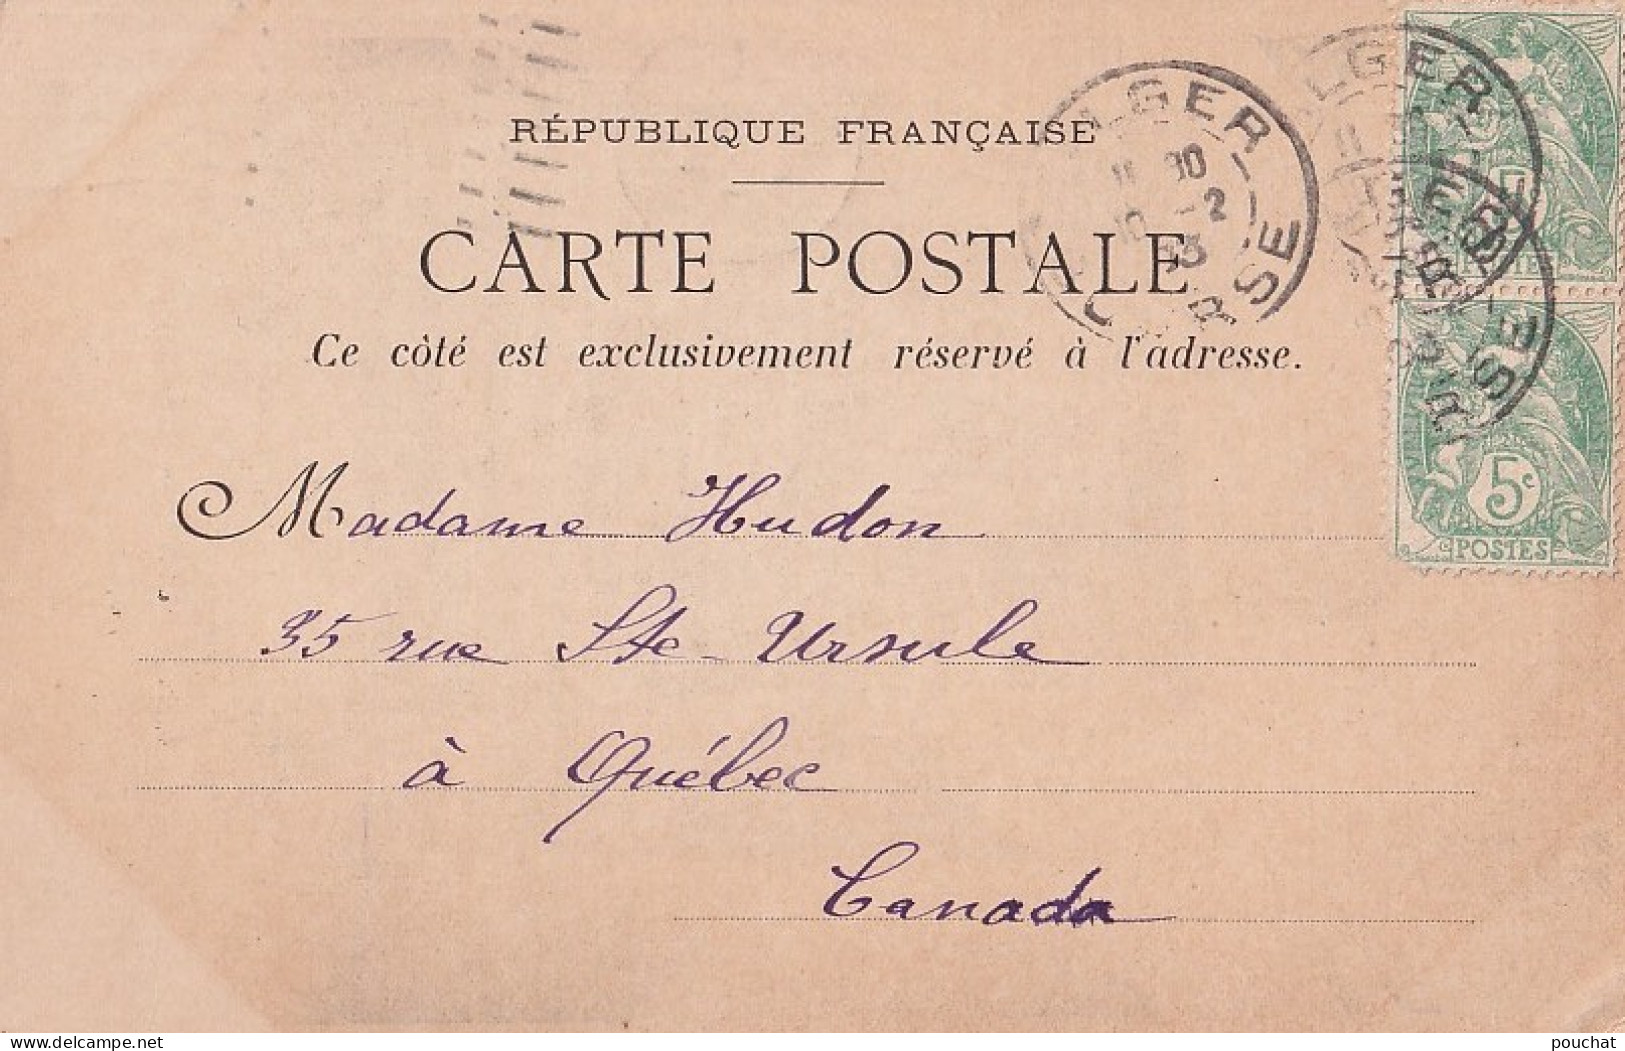 RÉPUBLIQUE FRANÇAISE
CARTE POSTALE
Ce côté est exclusivement réservé à l'adresse.
Madame Hudon
35 rue Ste Ursule
à Québec
Canada
ALGER
10 -2
03
BOURSE
ALGER
5c
POSTES
delcampe.net
pouchat